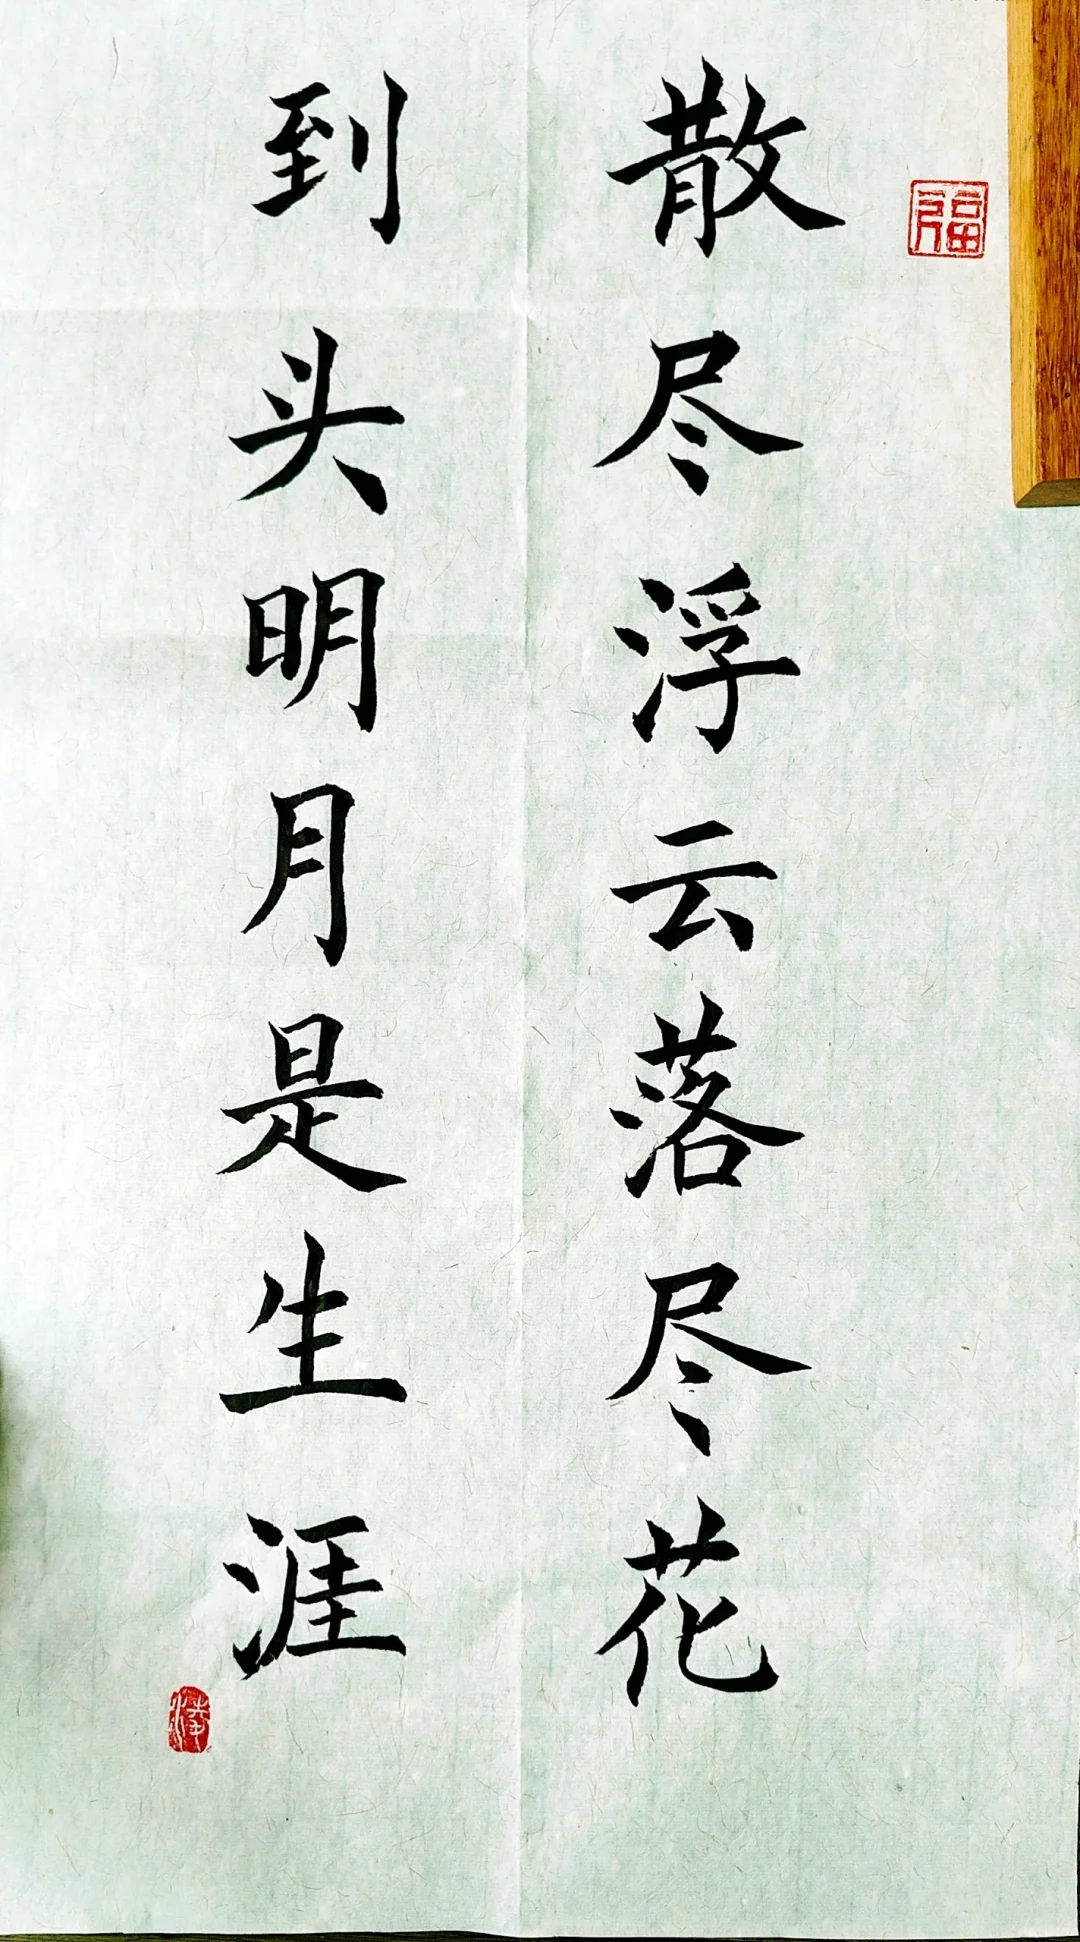 散尽浮云落尽花
到头明月是生涯
福